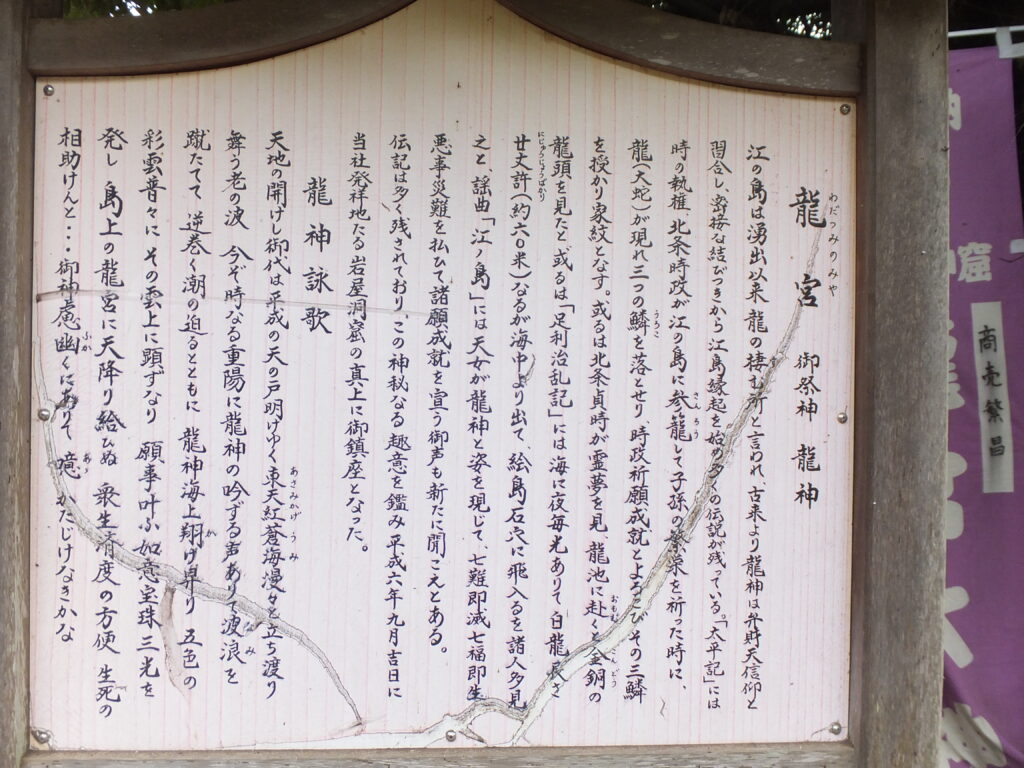 龍宮 御祭神 龍神
わだつみのみや
江の島は湧出以来、龍の棲む所と言われ、古来より龍神は弁財天信仰と
習合し、密接な結びつきから江島縁起を始め多くの伝説が残っている。「太平記」には
時の執権、北条時政が江の島に参籠して子孫の繁栄を祈った時に、
さんろう
龍(大蛇)が現れ三つの鱗を落とせり、時政祈願成就とよろこびその三鱗
うろこ
を授かり家紋となす。或るは北条貞時が霊夢を見、龍池に赴くと金銅の
おもむ
こんどう
龍頭を見たと、或るは「足利治乱記」には海に夜毎光ありて白龍長さ
廿丈許(約六〇米)なるが海中より出て、絵島石穴に飛入るを諸人多見
にじゅうじょうばかり
之と、謡曲「江ノ島」には天女が龍神と姿を現じて、七難即滅七福即生
悪事災難を払ひて諸願成就を宣う御声も新たに聞こえとある。
伝記は多く残されており この神秘なる趣意を鑑み平成六年九月吉日に
当社発祥地たる岩屋洞窟の真上に御鎮座となった。
龍神詠歌
天地の開けし御代は平成の天の戸明けゆく東天紅蒼海漫々と立ち渡り
あさみかげ
うみ
舞う老の波 今ぞ時なる重陽に龍神の吟ずる声ありて波浪を
なみ
蹴たてて 逆巻く潮の迫るとともに 龍神海上翔け昇り 五色の
が
彩雲普々に その雲上に頭ずなり 願事叶ふ如意宝珠三光を
発し 島上の龍宮に天降り給ひぬ 衆生済度の方便 生死の
相助けんと・・・御神慮幽くにありて 噫 かたじけなきかな
ふか
あゝ
窟
商売繁昌